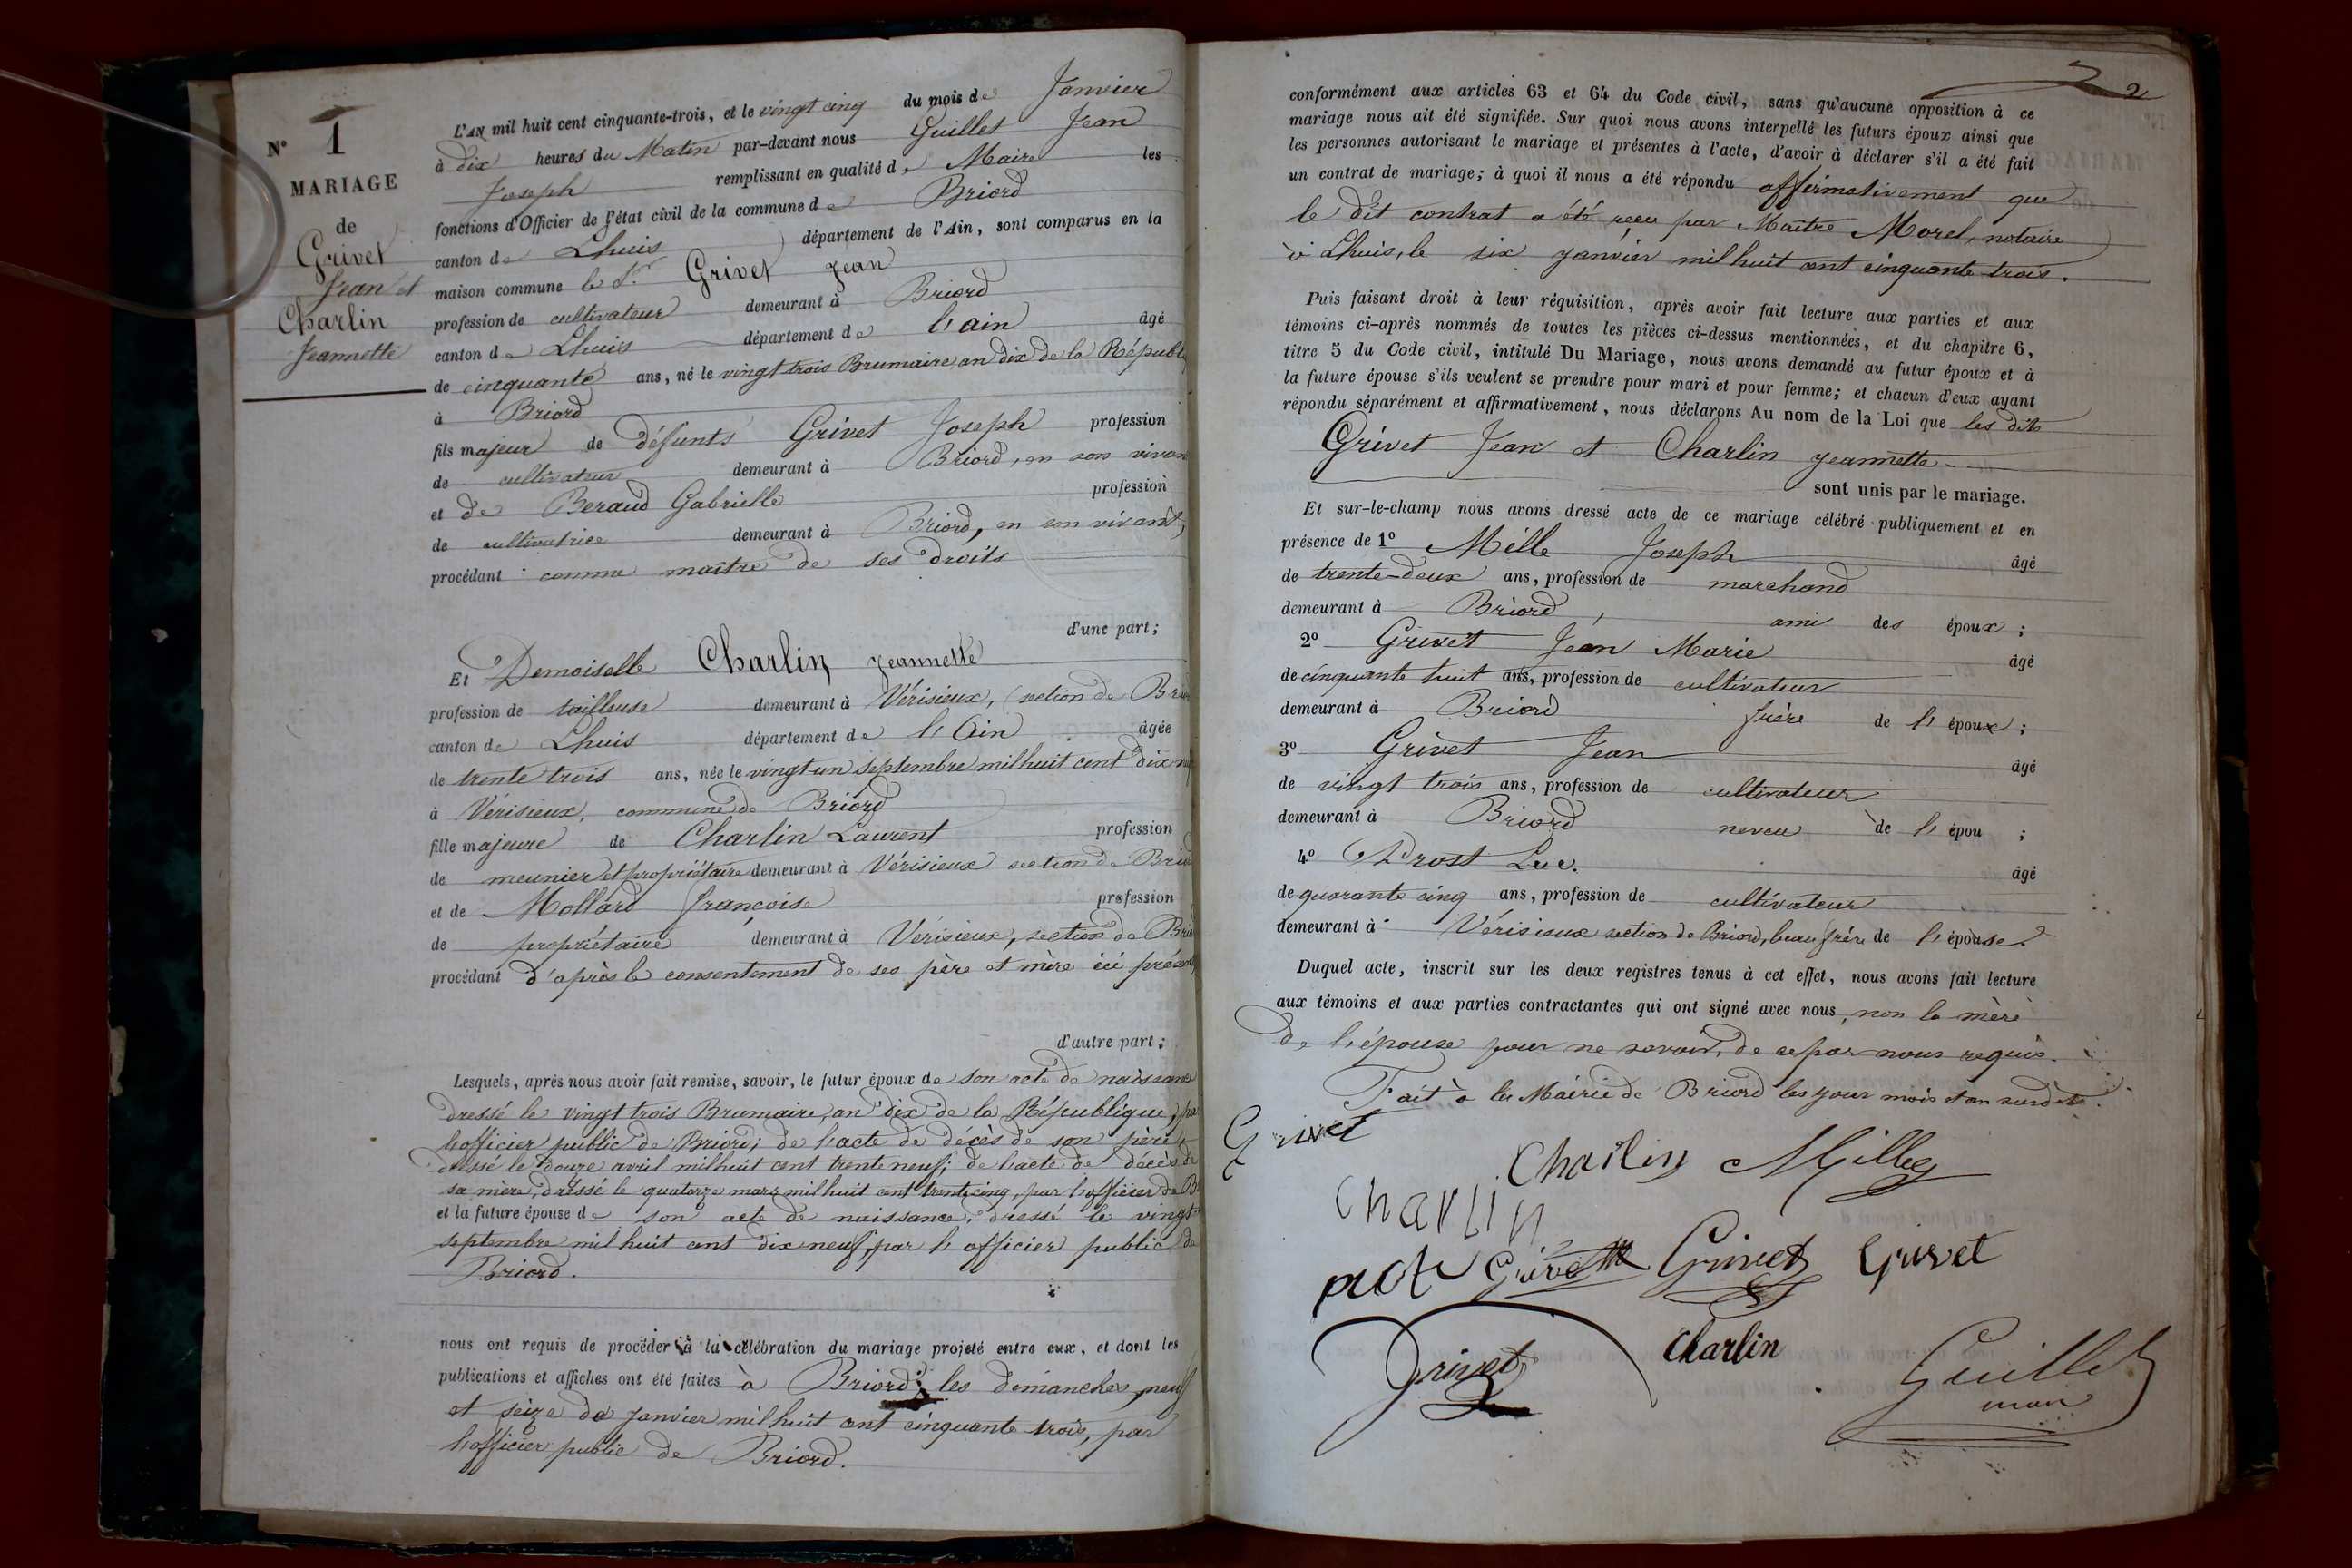 N° 1
MARIAGE
de
Grivet
Jean et
Charlin
Jeannette
L'AN mil huit cent cinquante-trois, et le vingt cinq du mois de Janvier
à dix heures du Matin par-devant nous Guillet Jean
Joseph remplissant en qualité de Maire les
fonctions d'Officier de l'état civil de la commune de Briord
canton de Lhuis département de l'Ain, sont comparus en la
maison commune le Sr. Grivet Jean
profession de cultivateur demeurant à Briord
canton de Lhuis département de l'ain âgé
de cinquante ans, né le vingt trois Brumaire an dix de la Républ
à Briord
fils majeur de défunts Grivet Joseph profession
de cultivateur demeurant à Briord, en son vivan
et de Beraud Gabrielle profession
de cultivatrice demeurant à Briord, en son vivant,
procédant comme maître de ses droits
d'une part;
Et Demoiselle Charlin Jeannette
profession de tailleuse demeurant à Vérisieux, section de Bri
canton de Lhuis département de l'Ain âgée
de trente trois ans, née le vingt un septembre mil huit cent dix n
à Vérisieux, commune de Briord
fille majeure de Charlin Laurent profession
de meunier et propriétaire demeurant à Vérisieux section de Brio
et de Mollard françoise profession
de propriétaire demeurant à Vérisieux, section de Bri
procédant d'après le consentement de ses père et mère ici présen
d'autre part;
Lesquels, après nous avoir fait remise, savoir, le futur époux de son acte de naissance
dressé le vingt trois Brumaire, an dix de la République, pa
l'officier public de Briord; de l'acte de décès de son père,
dressé le douze avril mil huit cent trente neuf; de l'acte de décès de
sa mère, dressé le quatorze mars mil huit cent trente cinq, par l'officier de B
et la future épouse de son acte de naissance, dressé le vingt
septembre mil huit cent dix neuf, par l'officier public de
Briord.
nous ont requis de procéder à la célébration du mariage projeté entre eux, et dont les
publications et affiches ont été faites à Briord, les dimanches, neuf
et seize de janvier mil huit cent cinquante trois, par
l'officier public de Briord.
2
conformément aux articles 63 et 64 du Code civil, sans qu'aucune opposition à ce
mariage nous ait été signifiée. Sur quoi nous avons interpellé les futurs époux ainsi que
les personnes autorisant le mariage et présentes à l'acte, d'avoir à déclarer s'il a été fait
un contrat de mariage; à quoi il nous a été répondu affirmativement que
le dit contrat a été reçu par Maître Morel, notaire
à Lhuis, le six janvier mil huit cent cinquante trois.
Puis faisant droit à leur réquisition, après avoir fait lecture aux parties et aux
témoins ci-après nommés de toutes les pièces ci-dessus mentionnées, et du chapitre 6,
titre 5 du Code civil, intitulé Du Mariage, nous avons demandé au futur époux et à
la future épouse s'ils veulent se prendre pour mari et pour femme; et chacun d'eux ayant
répondu séparément et affirmativement, nous déclarons Au nom de la Loi que les dits
Grivet Jean et Charlin Jeannette
sont unis par le mariage.
Et sur-le-champ nous avons dressé acte de ce mariage célébré publiquement et en
présence de 1° Mille Joseph âgé
de trente-deux ans, profession de marchand
demeurant à Briord, ami des époux;
2° Grivet Jean Marie âgé
de cinquante huit ans, profession de cultivateur
demeurant à Briord frère de l'époux;
3° Grivet Jean âgé
de vingt trois ans, profession de cultivateur
demeurant à Briord neveu de l'épou ;
4° Prost Luc. âgé
de quarante cinq ans, profession de cultivateur
demeurant à Vérisieux section de Briord, beau frère de l'épouse.
Duquel acte, inscrit sur les deux registres tenus à cet effet, nous avons fait lecture
aux témoins et aux parties contractantes qui ont signé avec nous, non la mère
de l'épouse pour ne savoir, de ce par nous requis.
Fait à la Mairie de Briord les jour mois et an susdits.
Grivet
Charlin
Charlin
Grivet Grivet
Grivet
Charlin
Guillet